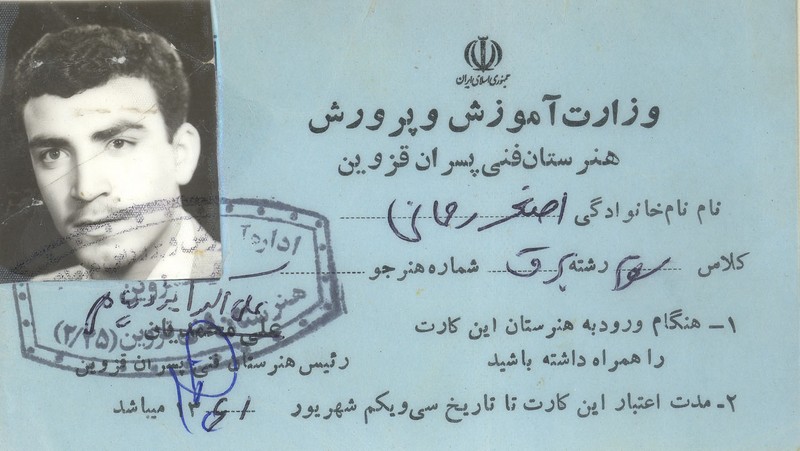 جمهوری اسلامی ایران
وزارت آموزش و پرورش
هنرستان فنی پسران قزوین
نام نام خانوادگی اصغر رحمانی
کلاس سوم رشته برق شماره هنرجو
۱ـ هنگام ورود به هنرستان این کارت
را همراه داشته باشید
۲ـ مدت اعتبار این کارت تا تاریخ سی و یکم شهریور ۱۳۶۱ میباشد
اداره
هنرستان
قزوین (۲/۲۵)
رئیس هنرستان فنی پسران قزوین